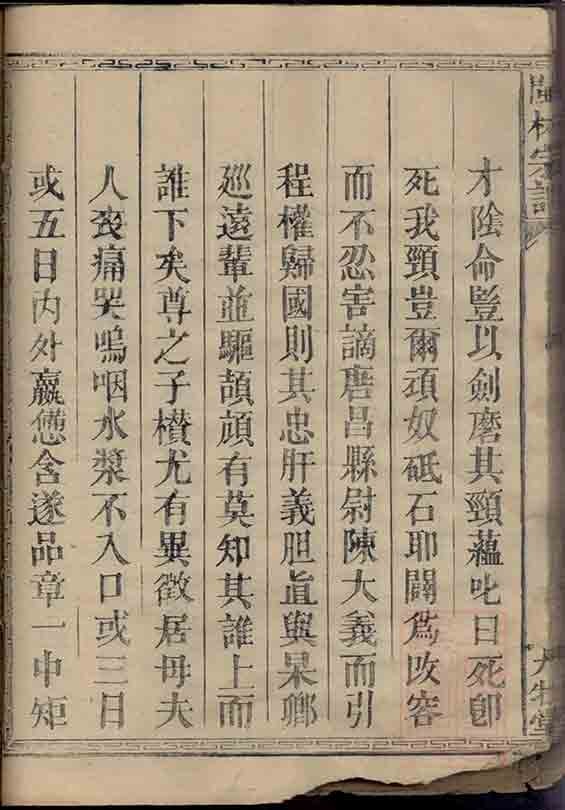 閩林宗譜
才陰命豎以劍磨其頸蘊叱曰死卽
死我頸豈爾頑奴砥石耶闢爲改容
而不忍害謫唐昌縣尉陳大義而引
程權歸國則其忠肝義胆眞與杲卿
廵遠輩並驅頡頏有莫知其誰上而
誰下矣尊之子欑尤有異徵居毋夫
人喪痛哭嗚咽水漿不入口或三日
或五日內外羸憊含遂品章一中矩